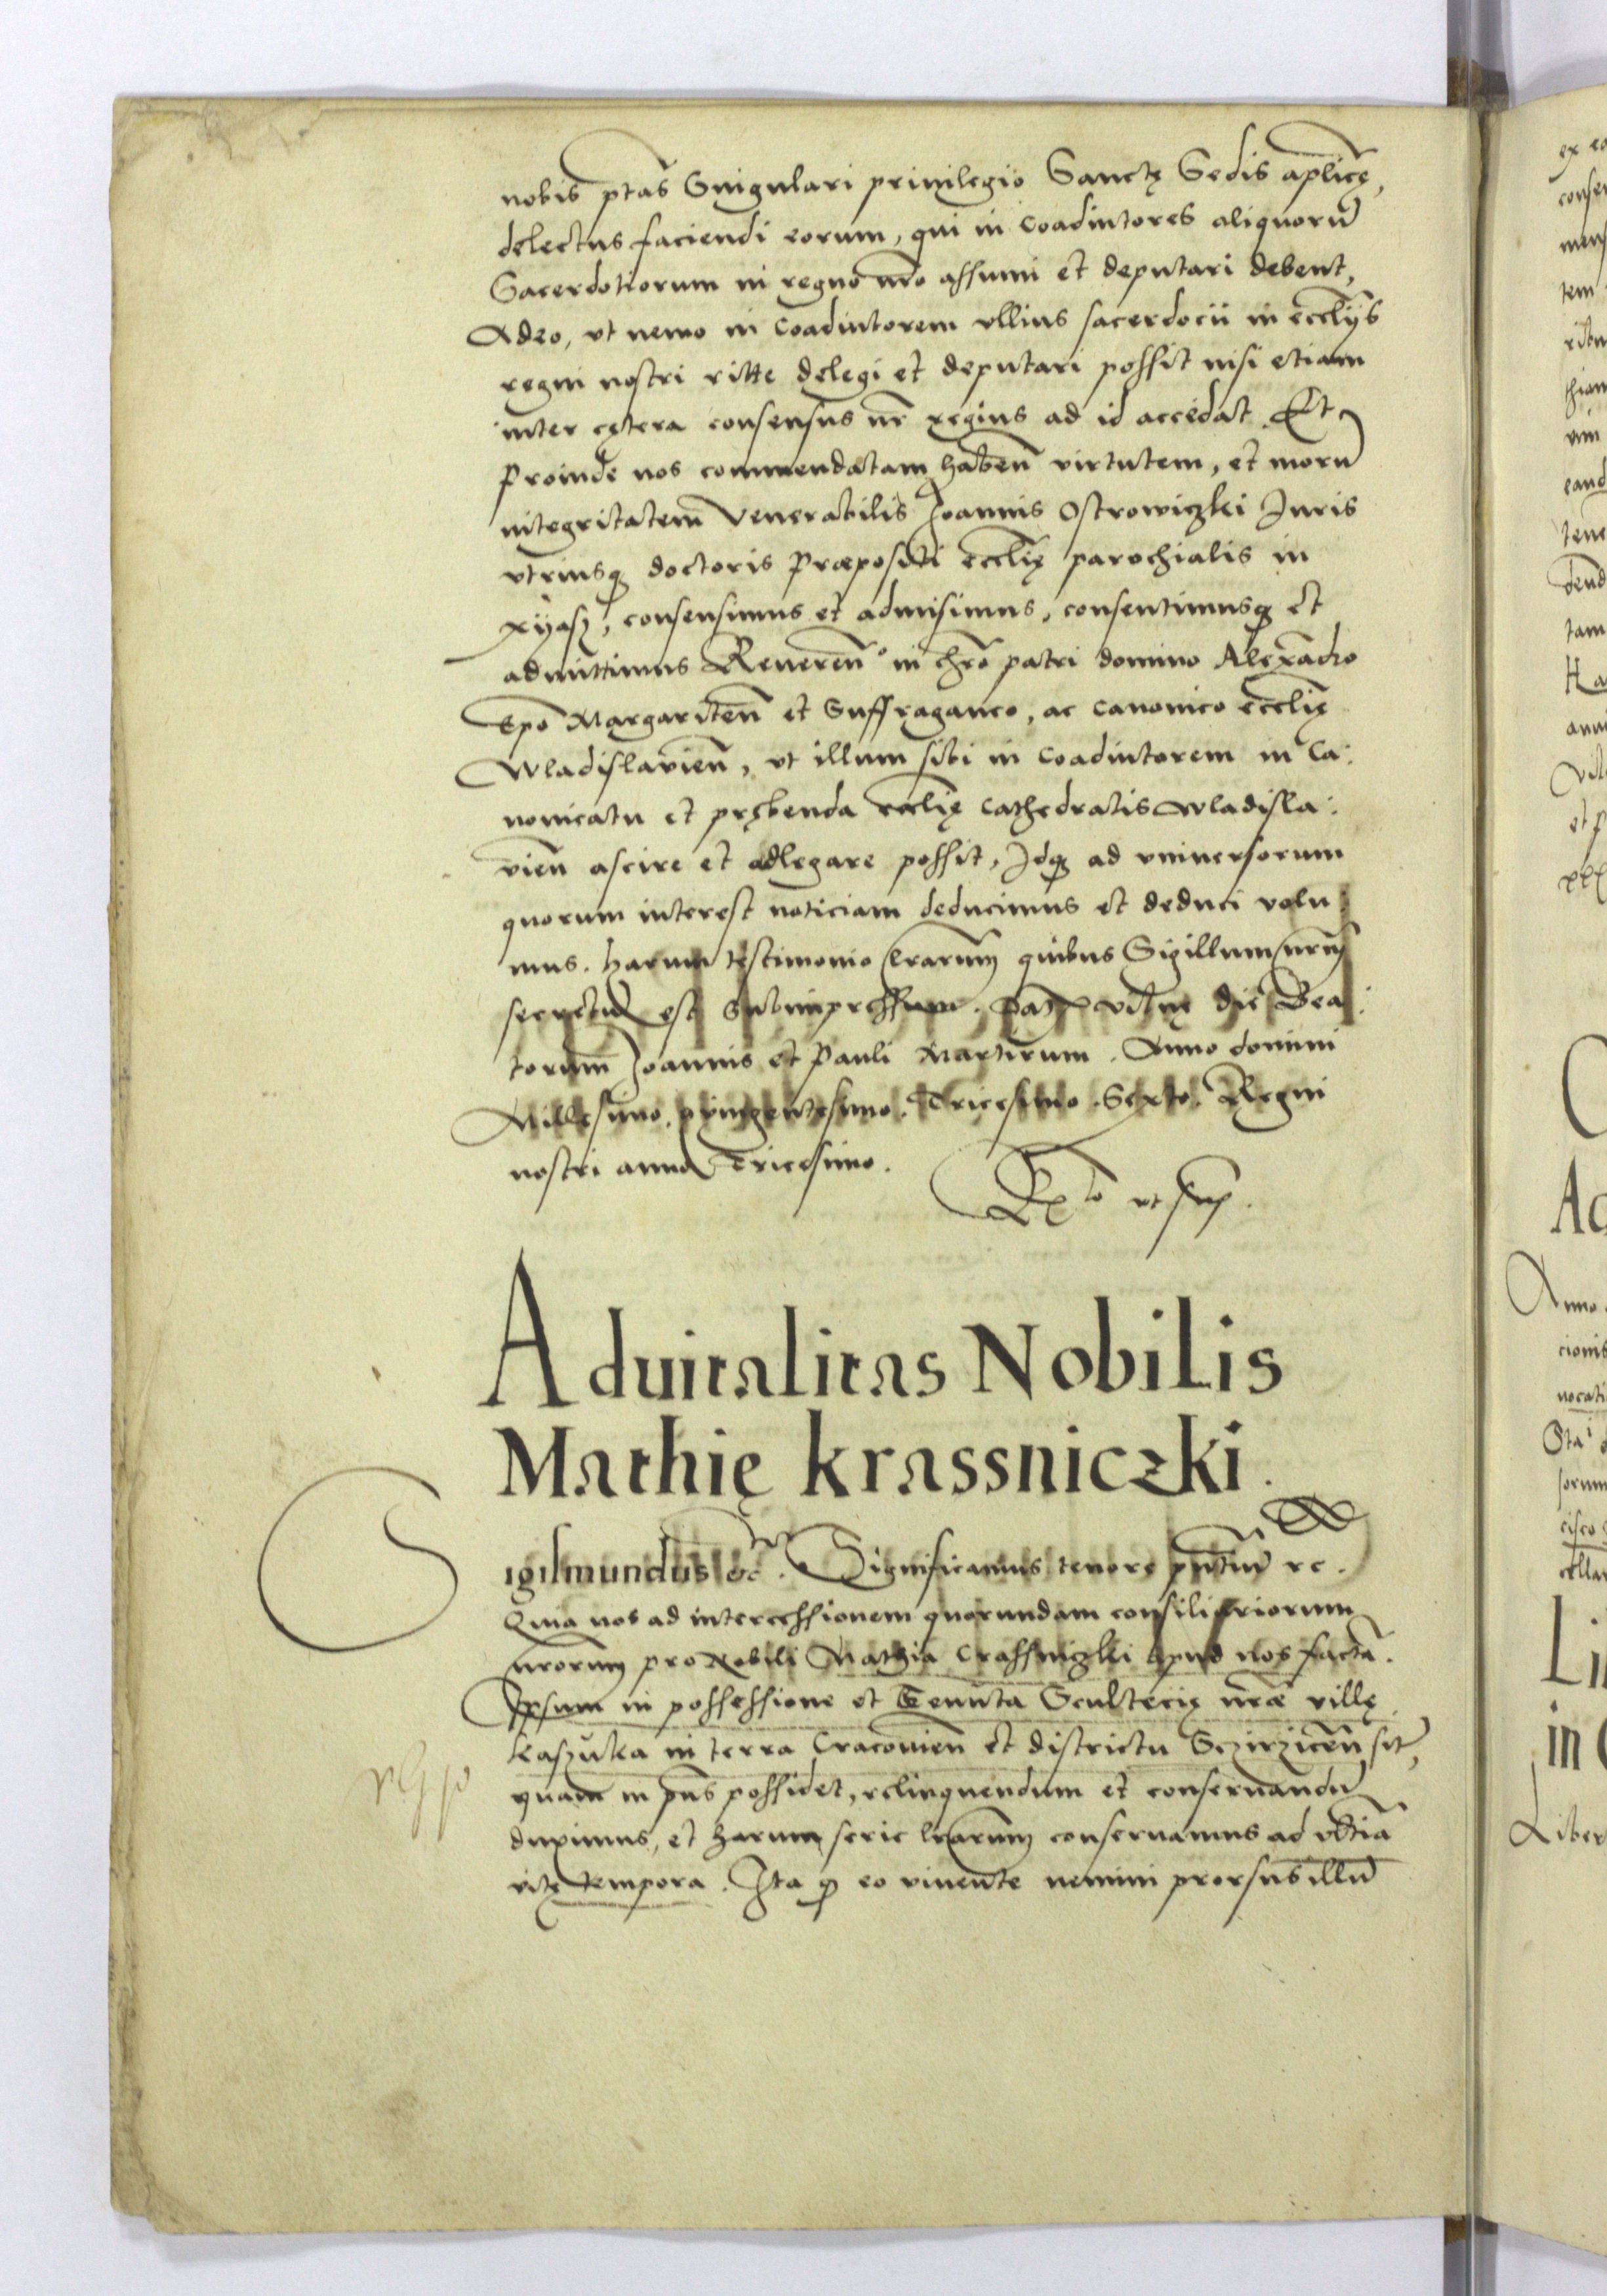 nobis ptās Singulari priuilegio Sanctę Sedis aplicę,
delectus faciendi eorum, qui in Coadiutores aliquorū
Sacerdotiorum in regno nrō assumi et deputari debent,
Adeo, vt nemo in Coadiutorem vllius sacerdocii in eccliys
regni nostri ritte delegi et deputari possit nisi etiam
inter cętera consensus nr̄ regius ad id accedat. Et
proinde nos commendatam habeñ virtutem, et morū
integritatem Venerabilis Joannis Ostrowiczki Juris
vtriusq doctoris Præpositi ecclię parochialis in
Xyasz, consensimus et admisimus, consentimusq et
admittimus Reuereñ° in chrō patri domino Alexādro
Epō Margariteñ et Suffraganeo, ac Canonico ecclię
Wladislauieñ, vt illum sibi in Coadiutorem in Ca:
nonicatu et prębenda ecclię Cathedralis wladisla:
uieñ ascire et adlegare possit, Idq ad vniuersorum
quorum interest noticiam deducimus et deduci volu:
mus. harum testimonio lrarum quibus Sigillum nrm
secretū est Subimpressum. Datz vilnę die Bea:
torum Joannis et Pauli Martirum. Anno domini
Millesimo. quingentesimo. Tricesimo. Sexto. Regni
nostri anno Tricesimo.
Rᵗᵒ vt sup.
Aduitalitas Nobilis
Mathię krassniczki.
Sigismundus &c. Significamus tenore pntiū rc.
Quia nos ad intercessionem quorundam consiliariorum
nrorum pro Nobili Mathia Crassniczki apud nos factā.
Ipsum in possessione et Tenuta Scultecię nræ villę
kaszuka in terra Cracouieñ et districtu Sczirziceñ sit̄,
quam in pñs possidet, relinquendum et conseruandū
duximus, et harum serie lrarum conseruamus ad vltiā
vitę tempora. Ita q eo viuente nemini prorsus illū
ex ea
tem
Ac
Anno
Li
in
Liber